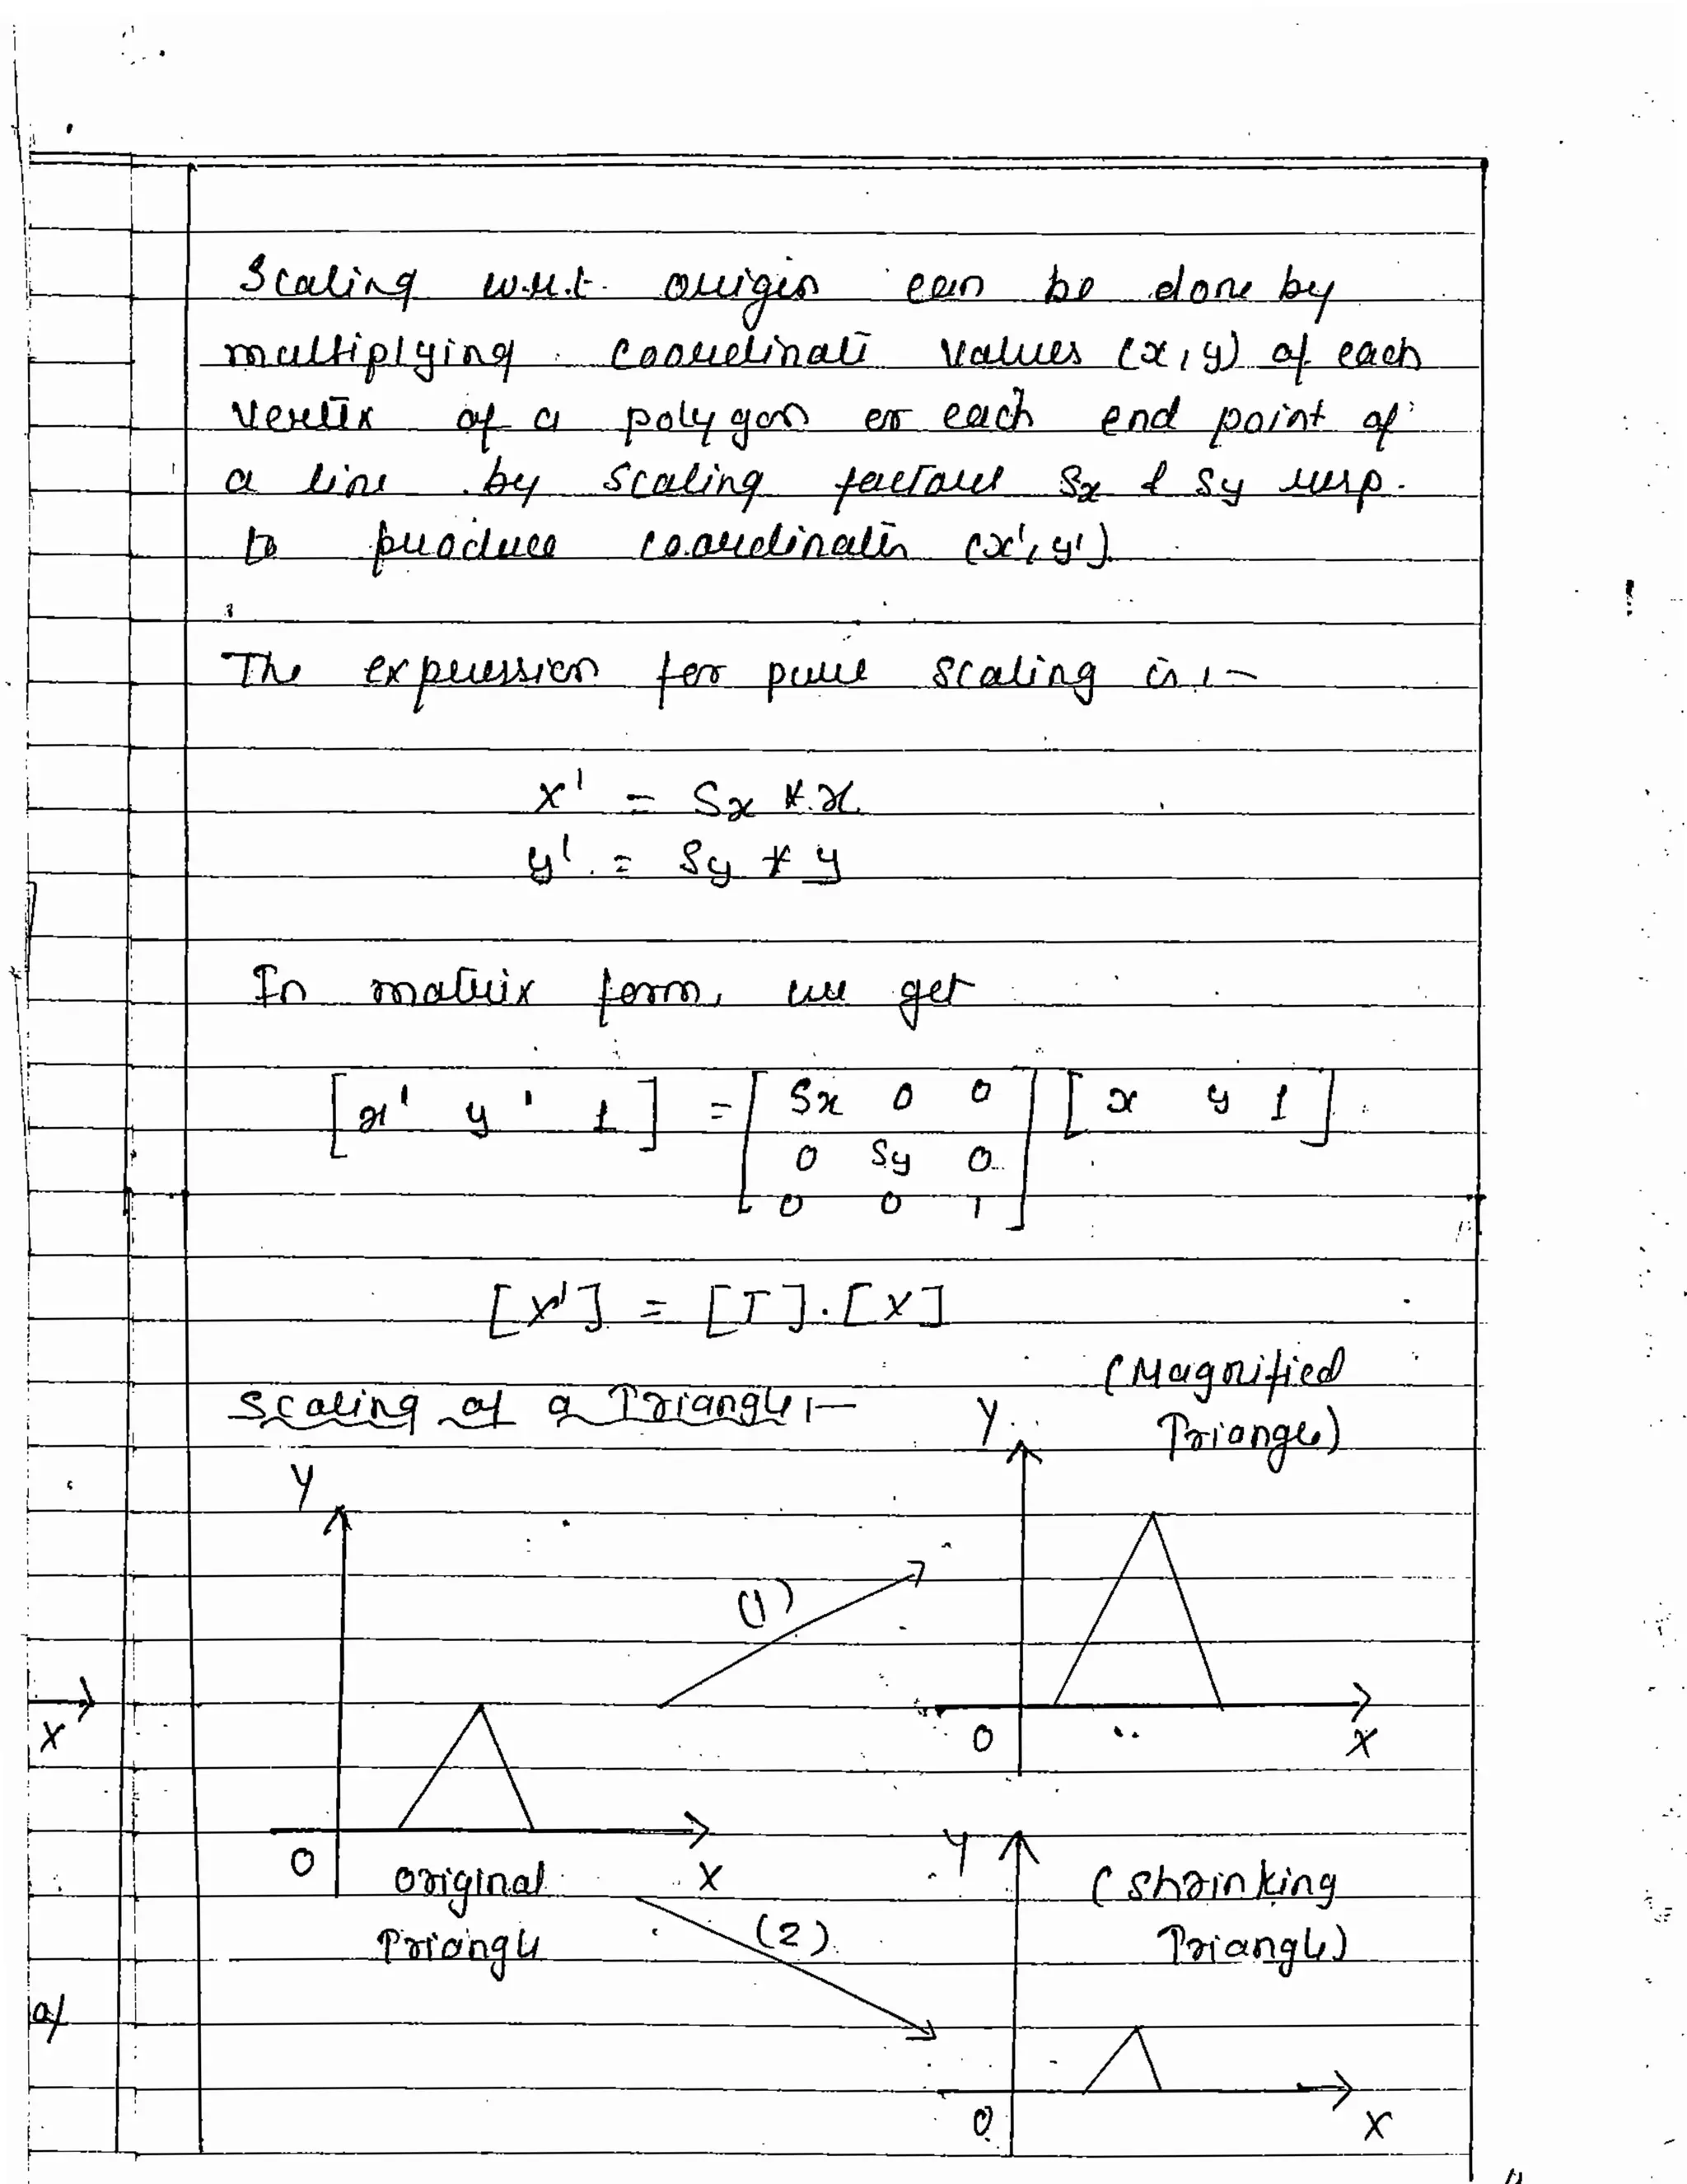 Scaling w.r.t. origin can be done by
multiplying coordinate values (x, y) of each
vertex of a polygon or each end point of
a line by scaling factors Sx & Sy resp.
to produce coordinates (x', y').
The expression for pure scaling is :-
x' = Sx * x
y' = Sy * y
In matrix form, we get
[x' y' 1] = [Sx 0 0] [x y 1]
0 Sy 0
0 0 1
[X'] = [T] . [X]
(Magnified
Scaling of a Triangle :-
Y
Triangle)
Y
(1)
X
O
X
O
Original
X
Triangle
Y
(Shrinking
(2)
Triangle)
of
O
X